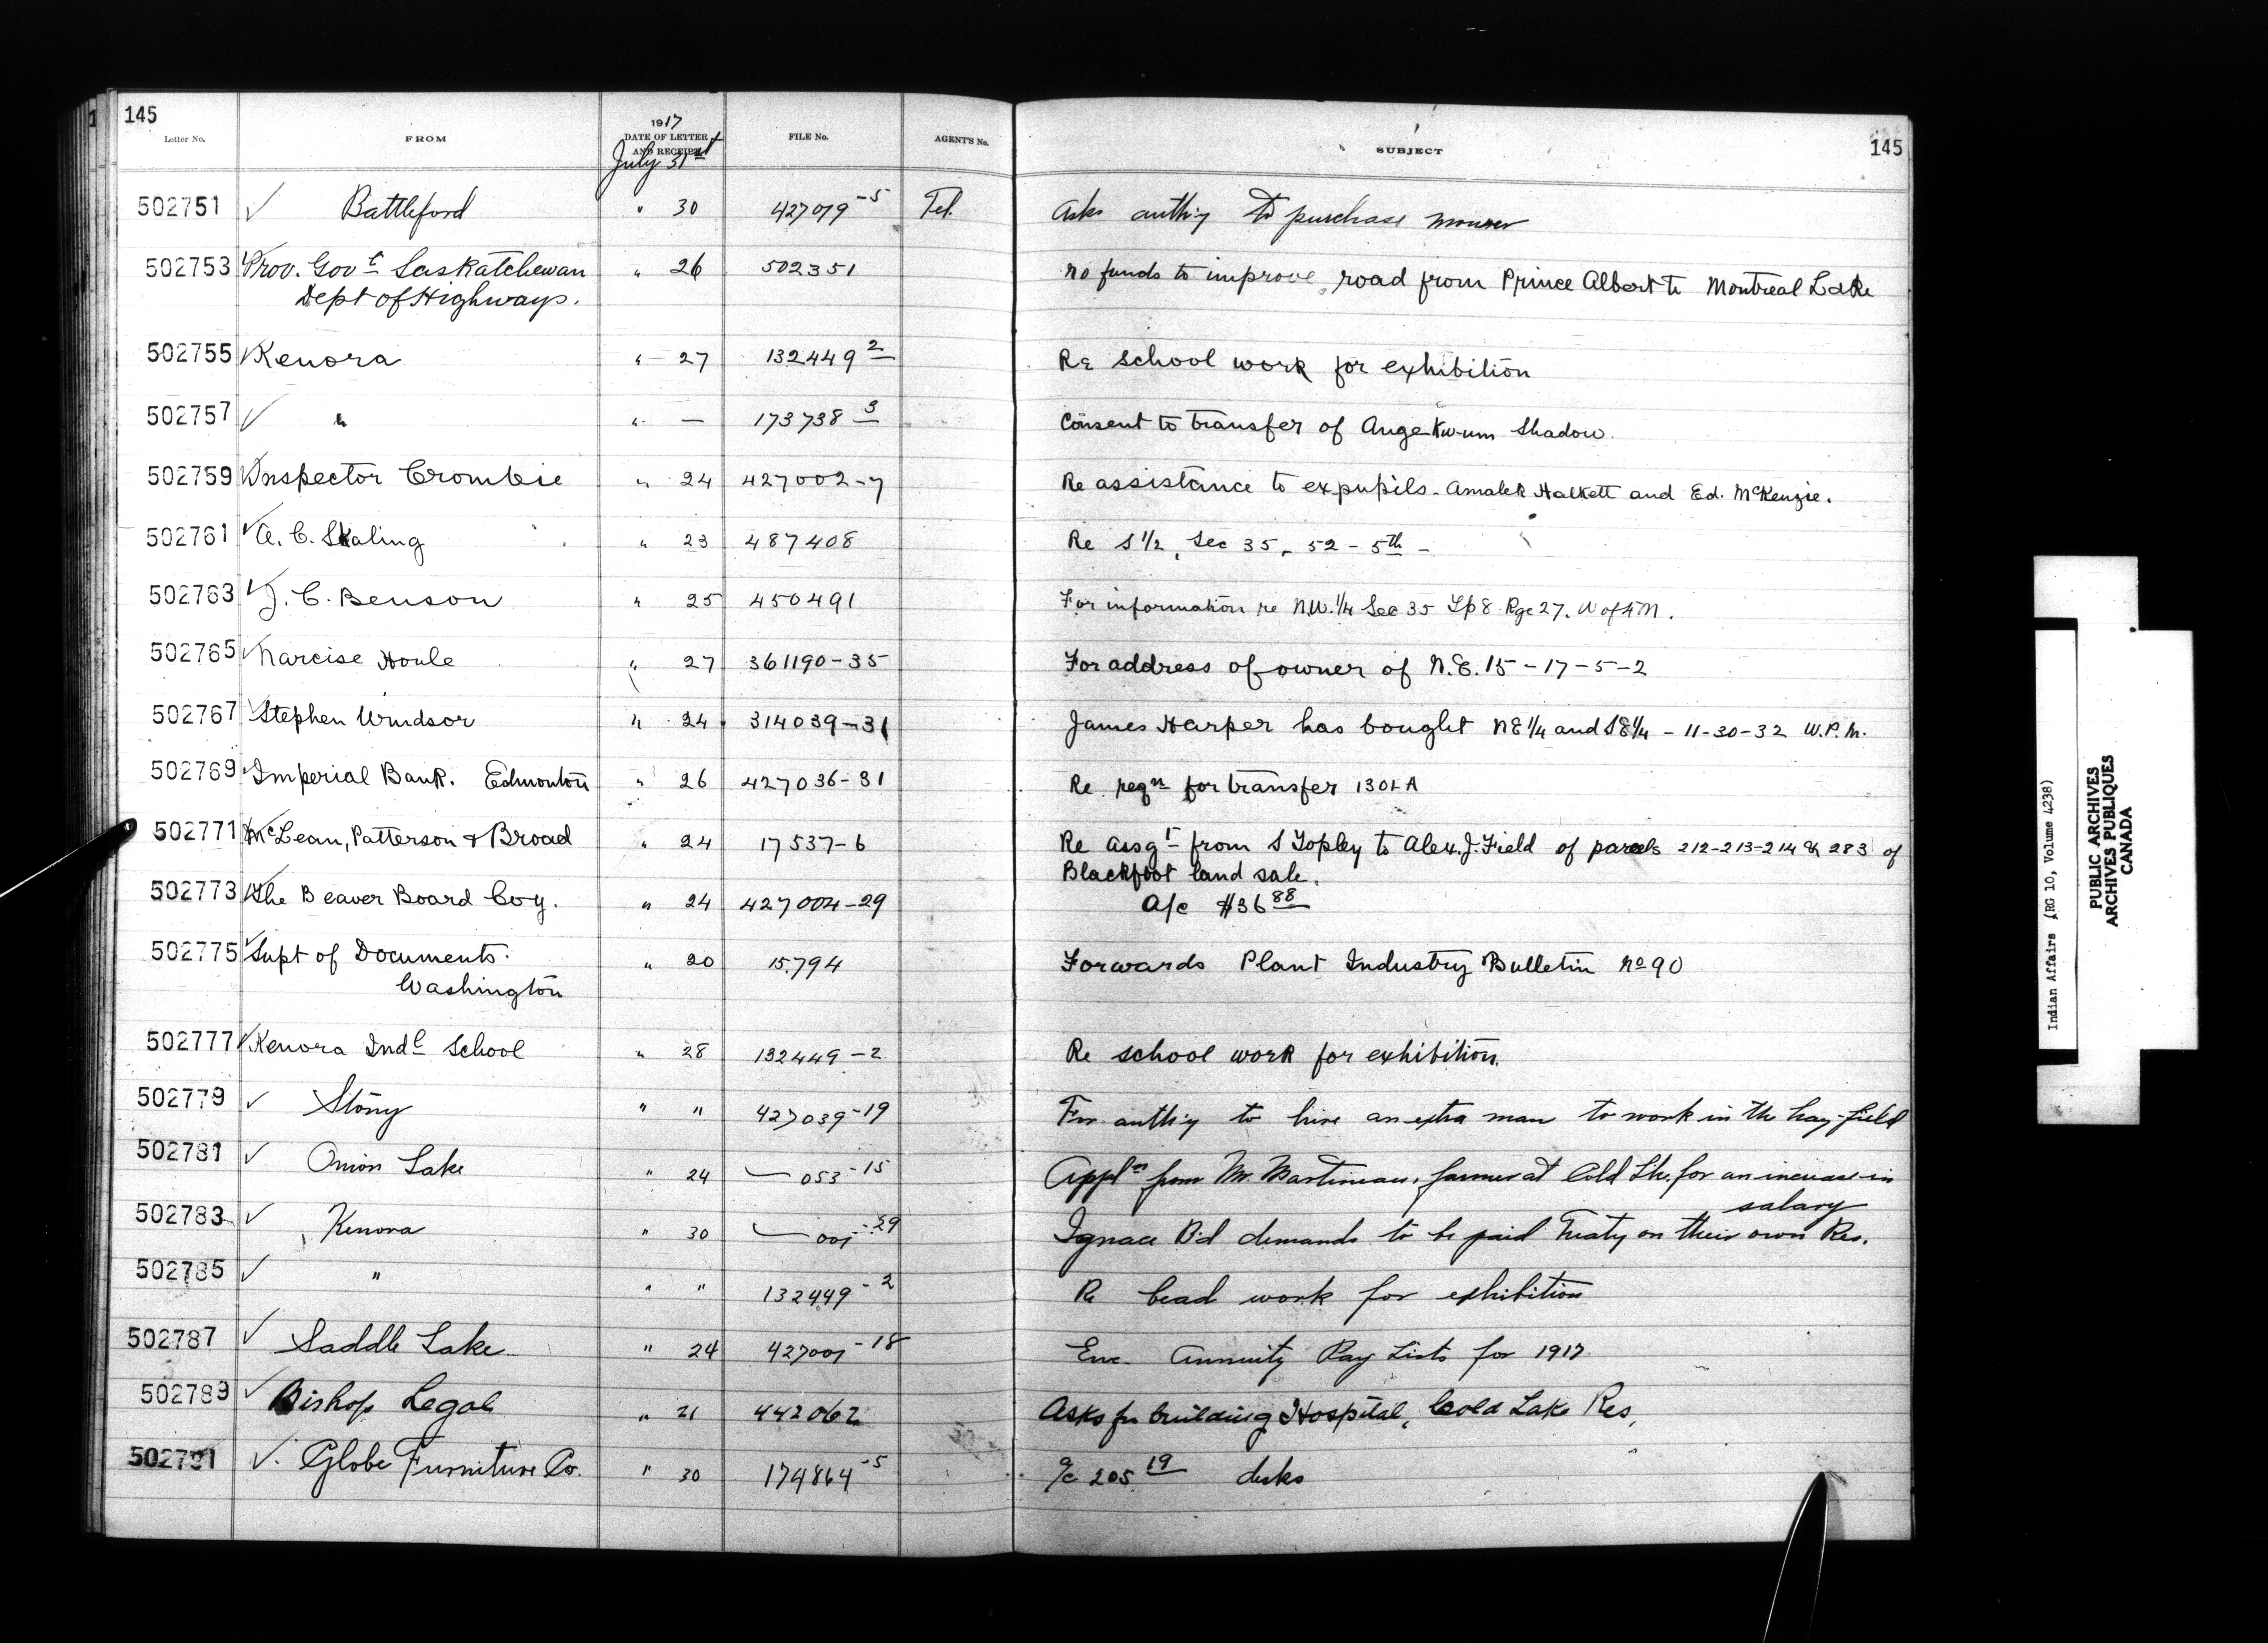 145
Letter No. FROM 1917 DATE OF LETTER AND RECEIPT FILE No. AGENT'S No. SUBJECT 145
July 31st
502751 ✓ Battleford " 30 427079-5 Tel. Asks auth'y to purchase mower
502753 ✓ Prov. Govt Saskatchewan " 26 502351 no funds to improve road from Prince Albert to Montreal Lake
Dept of Highways.
502755 ✓ Kenora " 27 132449-2 Re school work for exhibition
502757 ✓ " " — 173738-3 Consent to transfer of Angekwum Shadow.
502759 ✓ Inspector Crombie " 24 427002-7 Re assistance to expupils. Amalek Halkett and Ed. McKenzie.
502761 ✓ A. C. Skaling " 23 487408 Re S 1/2, Sec 35, 52 - 5th -
502763 ✓ J. C. Benson " 25 450491 For information re N.W. 1/4 Sec 35 Tp 8 Rge 27. W of 4 M.
502765 ✓ Narcise Houle " 27 361190-35 For address of owner of N.E. 15-17-5-2
502767 ✓ Stephen Windsor " 24 314039-31 James Harper has bought NE 1/4 and SE 1/4 - 11-30-32 W.P.M.
502769 ✓ Imperial Bank. Edmonton " 26 427036-31 Re reqn for transfer 1301A
502771 ✓ McLean, Patterson & Broad " 24 17537-6 Re assgt from S Topley to Alex. J. Field of parcels 212-213-214 & 283 of
Blackfoot land sale.
502773 ✓ The Beaver Board Coy. " 24 427004-29 A/c $36.88
502775 ✓ Supt of Documents. " 20 15794 Forwards Plant Industry Bulletin No 90
Washington
502777 ✓ Kenora Indl School " 28 132449-2 Re school work for exhibition.
502779 ✓ Stony " " 427039-19 For auth'y to hire an extra man to work in the hay-field
502781 ✓ Onion Lake " 24 — 053-15 Appln from Mr. Martineau, farmer at Cold Lk. for an increase in
salary
502783 ✓ Kenora " 30 — 001-29 Ignace Bd demands to be paid Treaty on their own Res.
502785 ✓ " " " 132449-2 Re bead work for exhibition
502787 ✓ Saddle Lake " 24 427001-18 Enc. Annuity Pay Lists for 1917
502789 ✓ Bishop Legal " 21 442062 Asks for building Hospital, Cold Lake Res.
502791 ✓ Globe Furniture Co. " 30 174864-5 a/c 205.19 desks
Indian Affairs (RG 10, Volume 4238)
PUBLIC ARCHIVES
ARCHIVES PUBLIQUES
CANADA